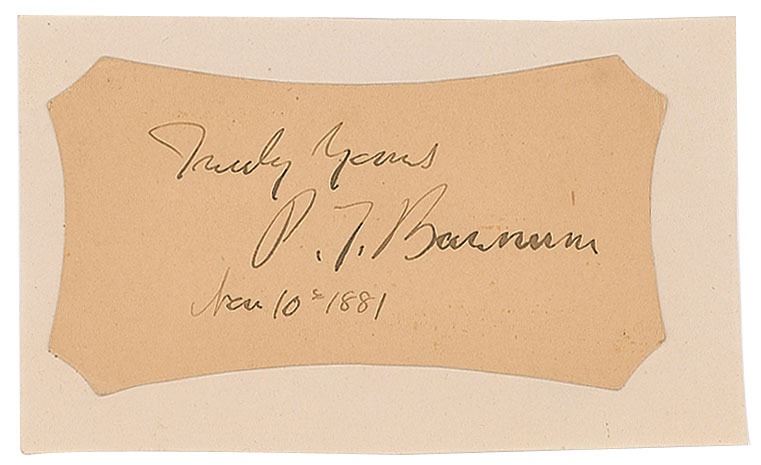 Truly Yours
P. T. Barnum
Nov 10 1881